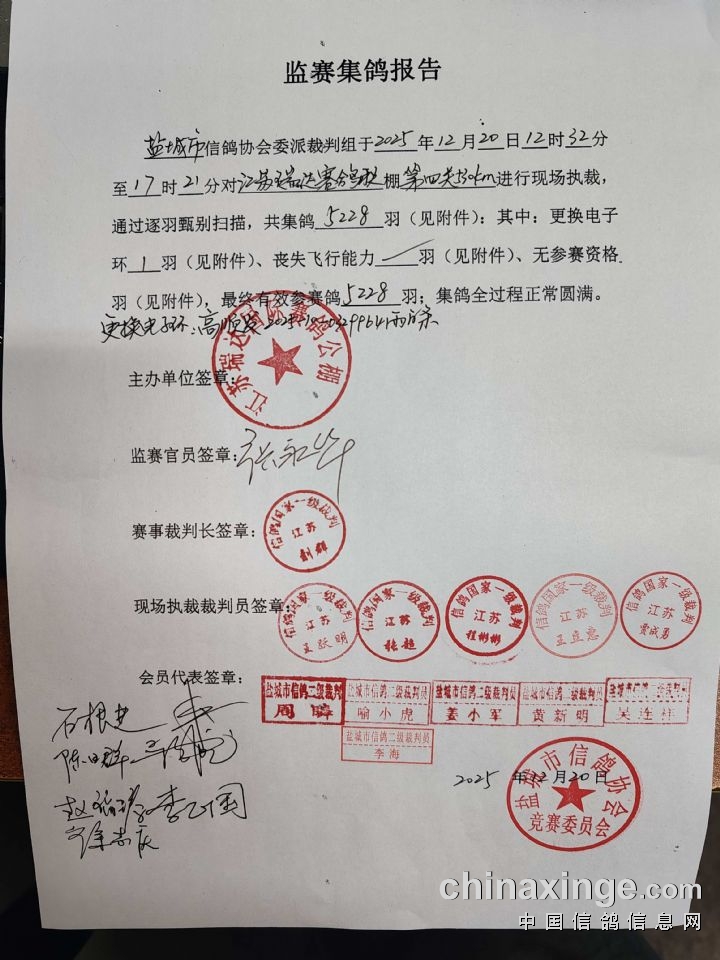 监赛集鸽报告
盐城市信鸽协会委派裁判组于2025年12月20日12时32分
至17时21分对江苏瑞达赛鸽公棚第四关530km进行现场执裁，
通过逐羽甄别扫描，共集鸽5228羽（见附件）：其中：更换电子
环1羽（见附件）、丧失飞行能力／羽（见附件）、无参赛资格
羽（见附件），最终有效参赛鸽5228羽；集鸽全过程正常圆满。
更换电子环：高
江苏瑞达国际赛鸽公棚
主办单位签章：
监赛官员签章：张永华
赛事裁判长签章：
信鸽国家一级裁判
江苏
现场执裁裁判员签章：
信鸽国家一级裁判 江苏 王跃明
信鸽国家一级裁判 江苏 张超
信鸽国家一级裁判 江苏 程彬彬
信鸽国家一级裁判 江苏
信鸽国家一级裁判 江苏 贾成勇
会员代表签章：
盐城市信鸽二级裁判员 周瞵
盐城市信鸽二级裁判员 喻小虎
盐城市信鸽二级裁判员 姜小军
盐城市信鸽二级裁判员 黄新明
盐城市信鸽二级裁判员 吴连祥
盐城市信鸽二级裁判员 李海
2025年12月20日
盐城市信鸽协会
竞赛委员会
chinaxinge.com
中国信鸽信息网